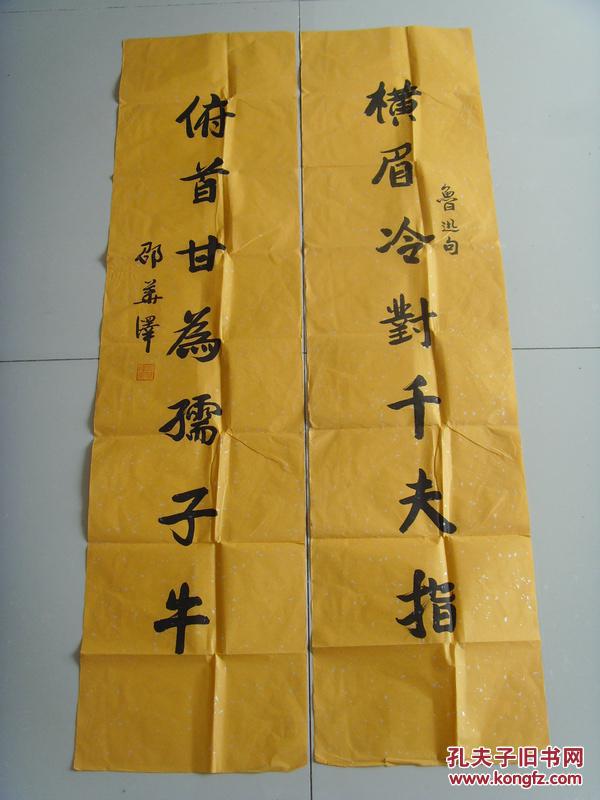 魯迅句
橫眉冷對千夫指
俯首甘為孺子牛
邵華澤
孔夫子旧书网
www.kongfz.com